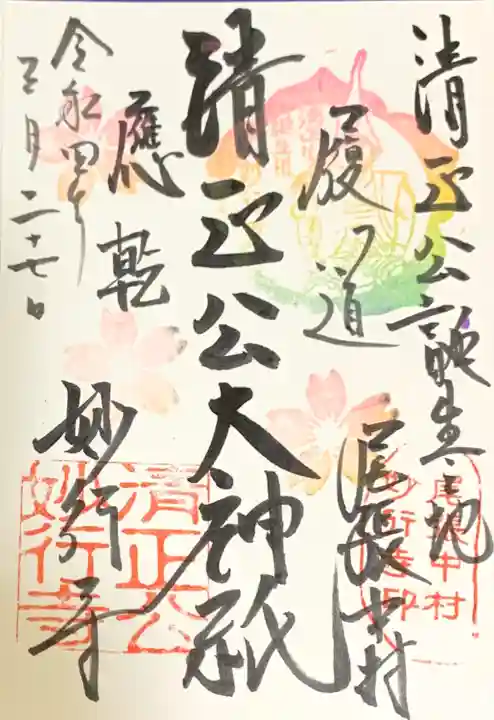 清正公誕生之地
尾張中村
履道
應乾
清正公大神祇
妙行寺
令和四年
三月二十七日
尾張中村
妙行寺印
清正公
妙行寺